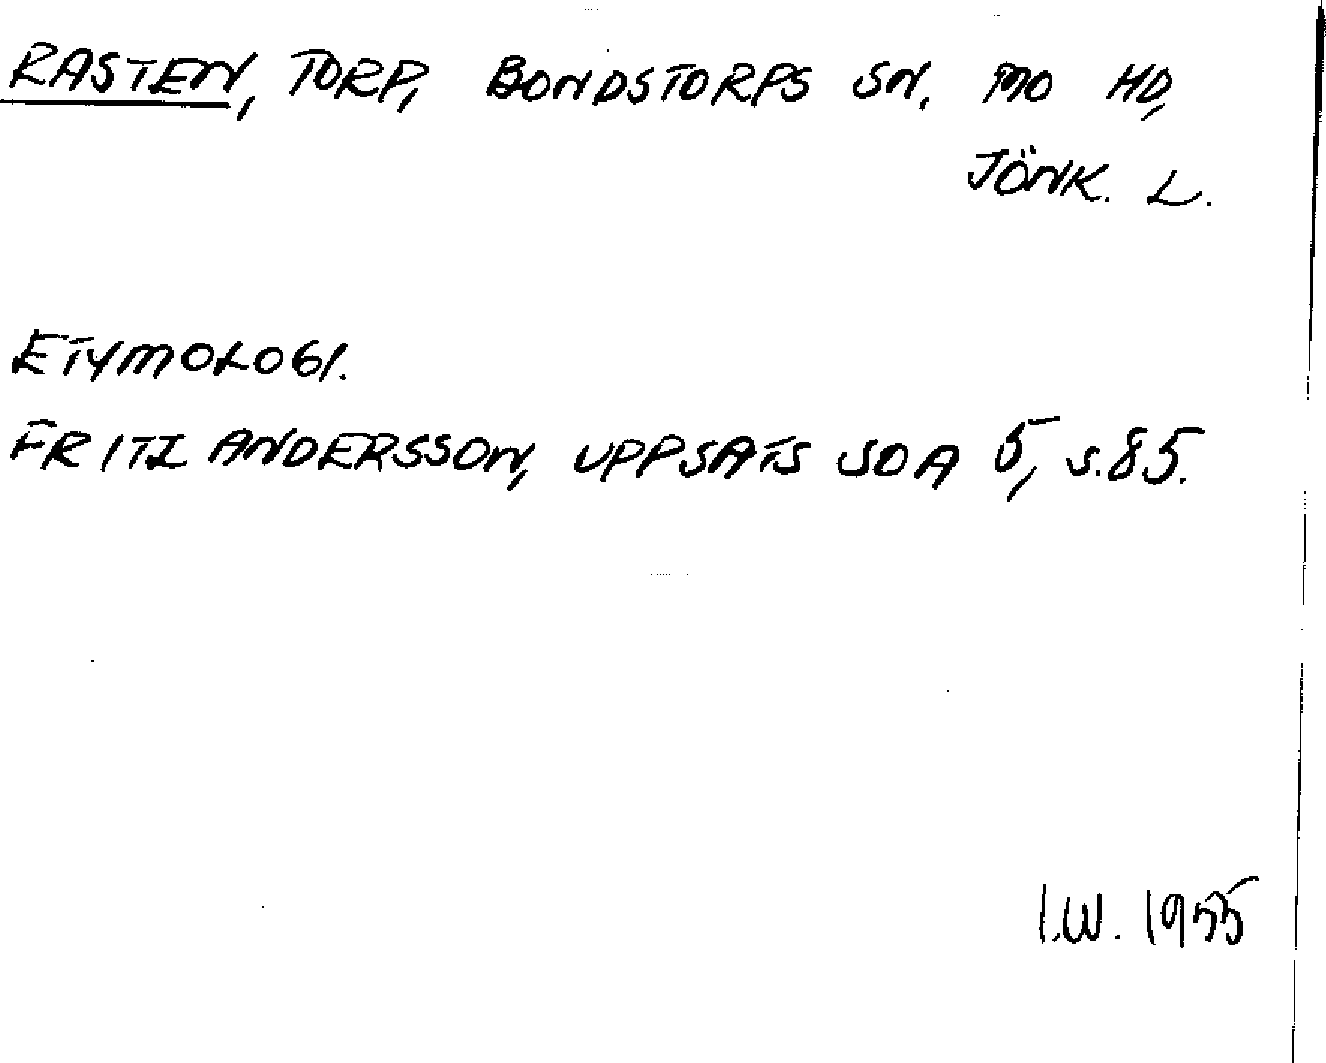 RASTEN, TORP, BONDSTORPS SN. MO HD,
JÖNK. L.
ETYMOLOGI.
FRITZ ANDERSSON, UPPSATS SOA 5, S.85.
I.W. 1955